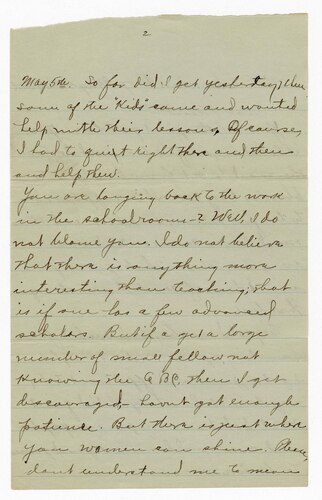 2
May 5th. So far did I get yesterday, then
some of the "Kids" came and wanted
help with their lessons, Of course,
I had to quiet right there and then
and help them.
You are longing back to the work
in the schoolroom - ? Well, I do
not blame you. I do not believe
that there is anything more
interesting than teaching, that
is if one has a few advanced
scholars. But if a get a large
number of small fellow not
knowing the A B C, then I get
discouraged, - havnt got enough
patience. But there is just where
you women can shine. Please,
don't understand me to mean